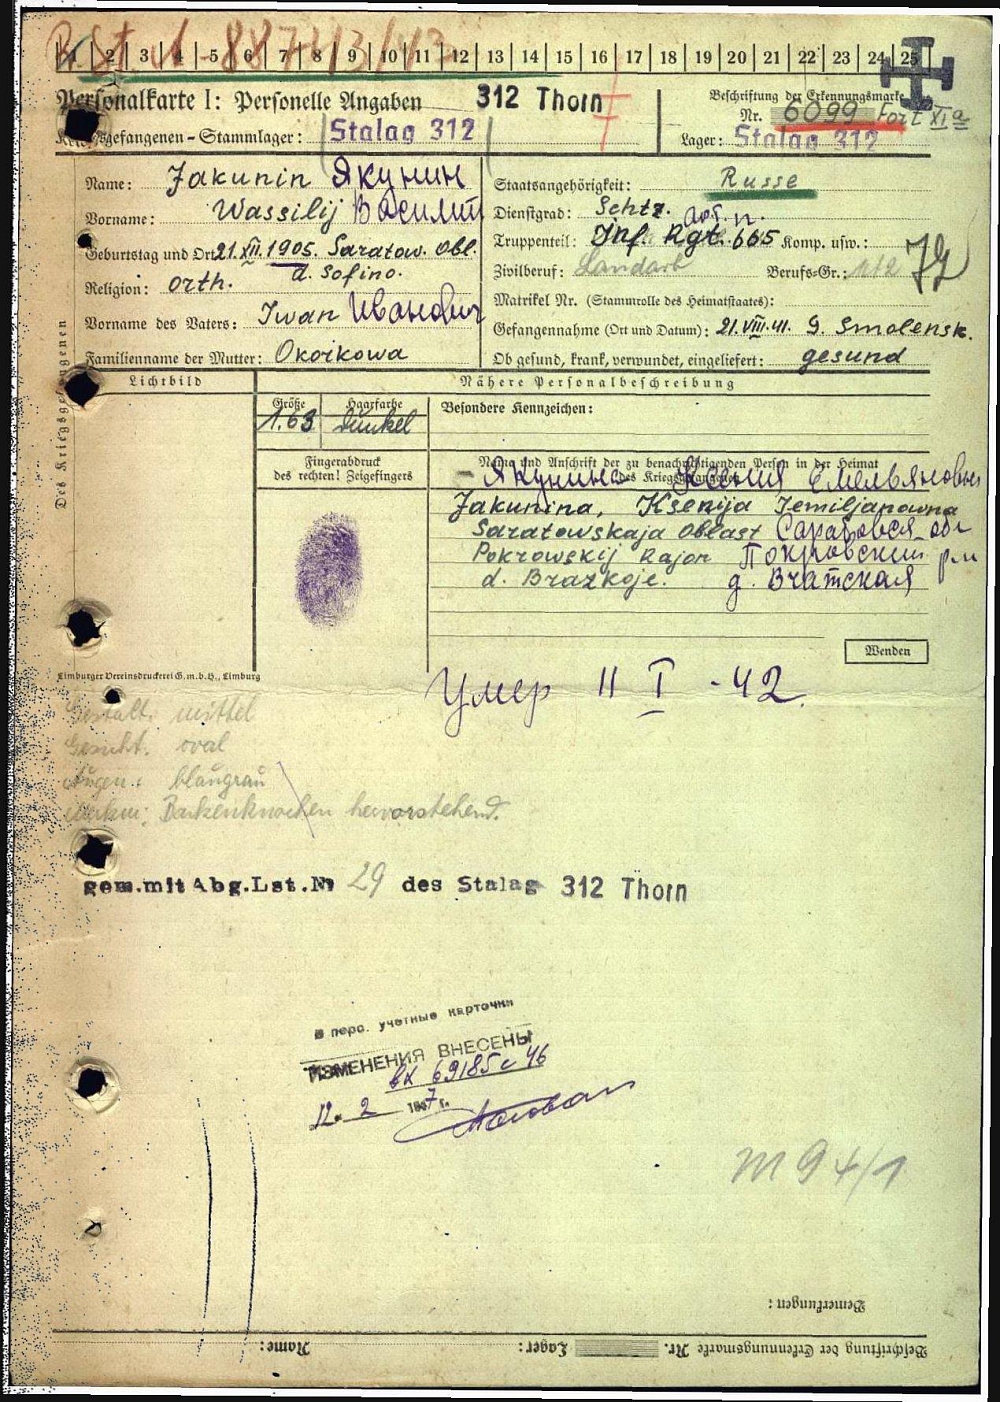 1 2 3 4 5 6 7 8 9 10 11 12 13 14 15 16 17 18 19 20 21 22 23 24 25
Personalkarte I: Personelle Angaben 312 Thorn
Kriegsgefangenen-Stammlager: Stalag 312
Beschriftung der Erkennungsmarke
Nr. 6099 Fort XIa
Lager: Stalag 312
Name: Jakunin Якунин
Vorname: Wassilij Василий
Geburtstag und Ort 21.XII.1905. Saratow. Obl.
d. Sofino.
Religion: orth.
Vorname des Vaters: Iwan Иванович
Familienname der Mutter: Okorkowa
Staatsangehörigkeit: Russe
Dienstgrad: Schtz.
Truppenteil: Inf. Rgt. 665 Komp. usw.:
Zivilberuf: Landarb Berufs-Gr.: 112
Matrikel Nr. (Stammrolle des Heimatstaates):
Gefangennahme (Ort und Datum): 21.VIII.41. G. Smolensk.
Ob gesund, krank, verwundet, eingeliefert: gesund
Des Kriegsgefangenen
Lichtbild
Nähere Personalbeschreibung
Größe Haarfarbe
1.63 Dunkel
Besondere Kennzeichen:
Fingerabdruck
des rechten! Zeigefingers
Name und Anschrift der zu benachrichtigenden Person in der Heimat
des Kriegsgefangenen
Якунина Ксения Емельяновны
Jakunina, Ksenija Jemiljanowna
Saratowskaja Oblast Саратовся обл
Pokrowskij Rajon Покровский р-н
d. Brazkoje. д. Вчатская
Wenden
Limburger Vereinsdruckerei G.m.b.H., Limburg
Умер 11 I -42.
Gestalt: mittel
Gesicht: oval
Augen: blaugrau
Backenknochen hervorstehend.
gem. mit Abg. Lst. № 29 des Stalag 312 Thorn
В перс. учетные карточки
ИЗМЕНЕНИЯ ВНЕСЕНЫ
вх 69185с 46
12. 2 1947 г.
M 94/1
Bemerkungen:
Beschriftung der Erkennungsmarke Nr. Lager: Name: